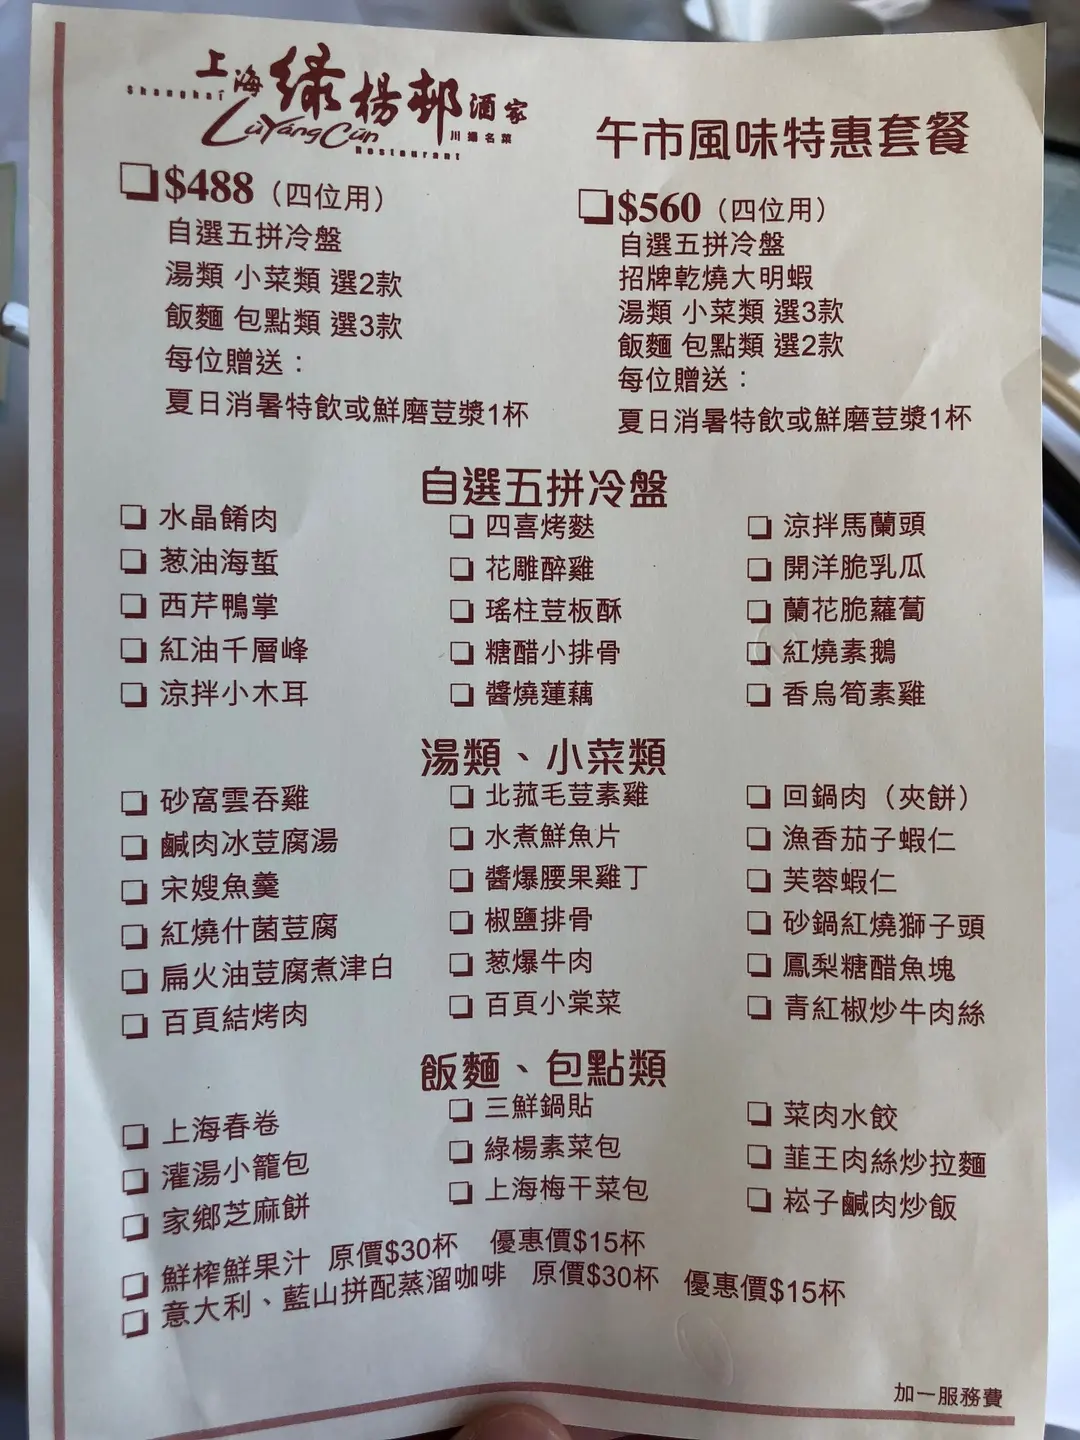 上海綠楊邨酒家
Shanghai
LüYángCūn
川揚名菜
Restaurant
午市風味特惠套餐
$488（四位用）
自選五拼冷盤
湯類 小菜類 選2款
飯麵 包點類 選3款
每位贈送：
夏日消暑特飲或鮮磨荳漿1杯
$560（四位用）
自選五拼冷盤
招牌乾燒大明蝦
湯類 小菜類 選3款
飯麵 包點類 選2款
每位贈送：
夏日消暑特飲或鮮磨荳漿1杯
自選五拼冷盤
水晶餚肉
葱油海蜇
西芹鴨掌
紅油千層峰
涼拌小木耳
四喜烤麩
花雕醉雞
瑤柱荳板酥
糖醋小排骨
醬燒蓮藕
涼拌馬蘭頭
開洋脆乳瓜
蘭花脆蘿蔔
紅燒素鵝
香烏筍素雞
湯類、小菜類
砂窩雲吞雞
鹹肉冰荳腐湯
宋嫂魚羹
紅燒什菌荳腐
扁火油荳腐煮津白
百頁結烤肉
北菰毛荳素雞
水煮鮮魚片
醬爆腰果雞丁
椒鹽排骨
葱爆牛肉
百頁小棠菜
回鍋肉（夾餅）
漁香茄子蝦仁
芙蓉蝦仁
砂鍋紅燒獅子頭
鳳梨糖醋魚塊
青紅椒炒牛肉絲
飯麵、包點類
上海春卷
灌湯小籠包
家鄉芝麻餅
三鮮鍋貼
綠楊素菜包
上海梅干菜包
菜肉水餃
韮王肉絲炒拉麵
崧子鹹肉炒飯
鮮榨鮮果汁 原價$30杯 優惠價$15杯
意大利、藍山拼配蒸溜咖啡 原價$30杯 優惠價$15杯
加一服務費